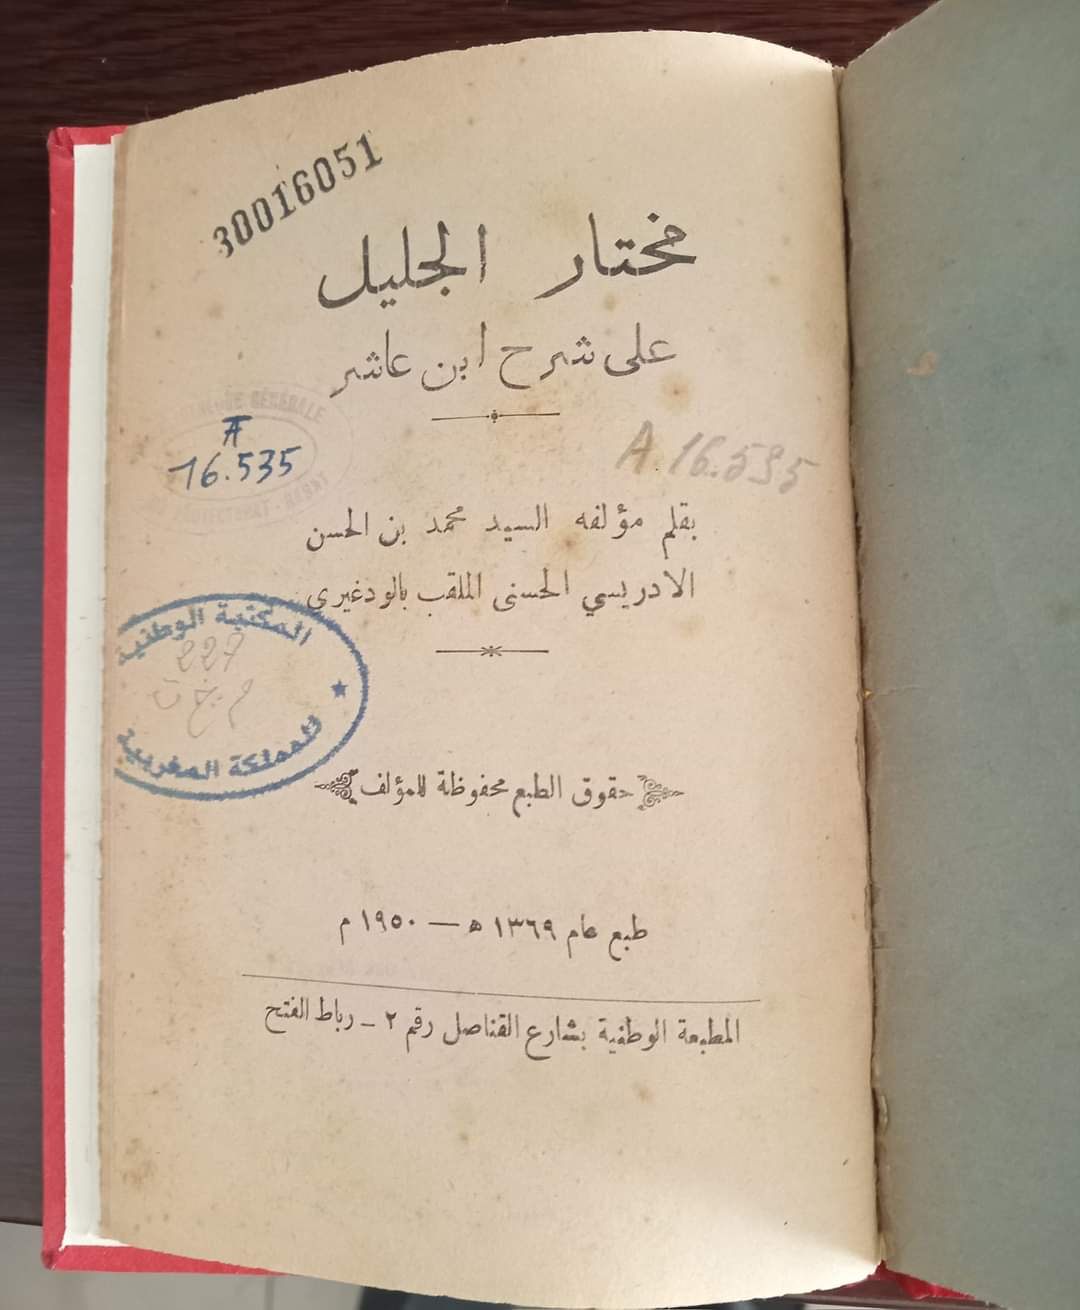 30016051
مختار الجليل
على شرح ابن عاشر
A
16.535
A 16.535
بقلم مؤلفه السيد محمد بن الحسن
الادريسي الحسنى الملقب بالودغيري
المكتبة الوطنية
227
م.خ ت
للمملكة المغربية
حقوق الطبع محفوظة للمؤلف
طبع عام ١٣٦٩ ه — ١٩٥٠ م
المطبعة الوطنية بشارع القناصل رقم ٢ - رباط الفتح